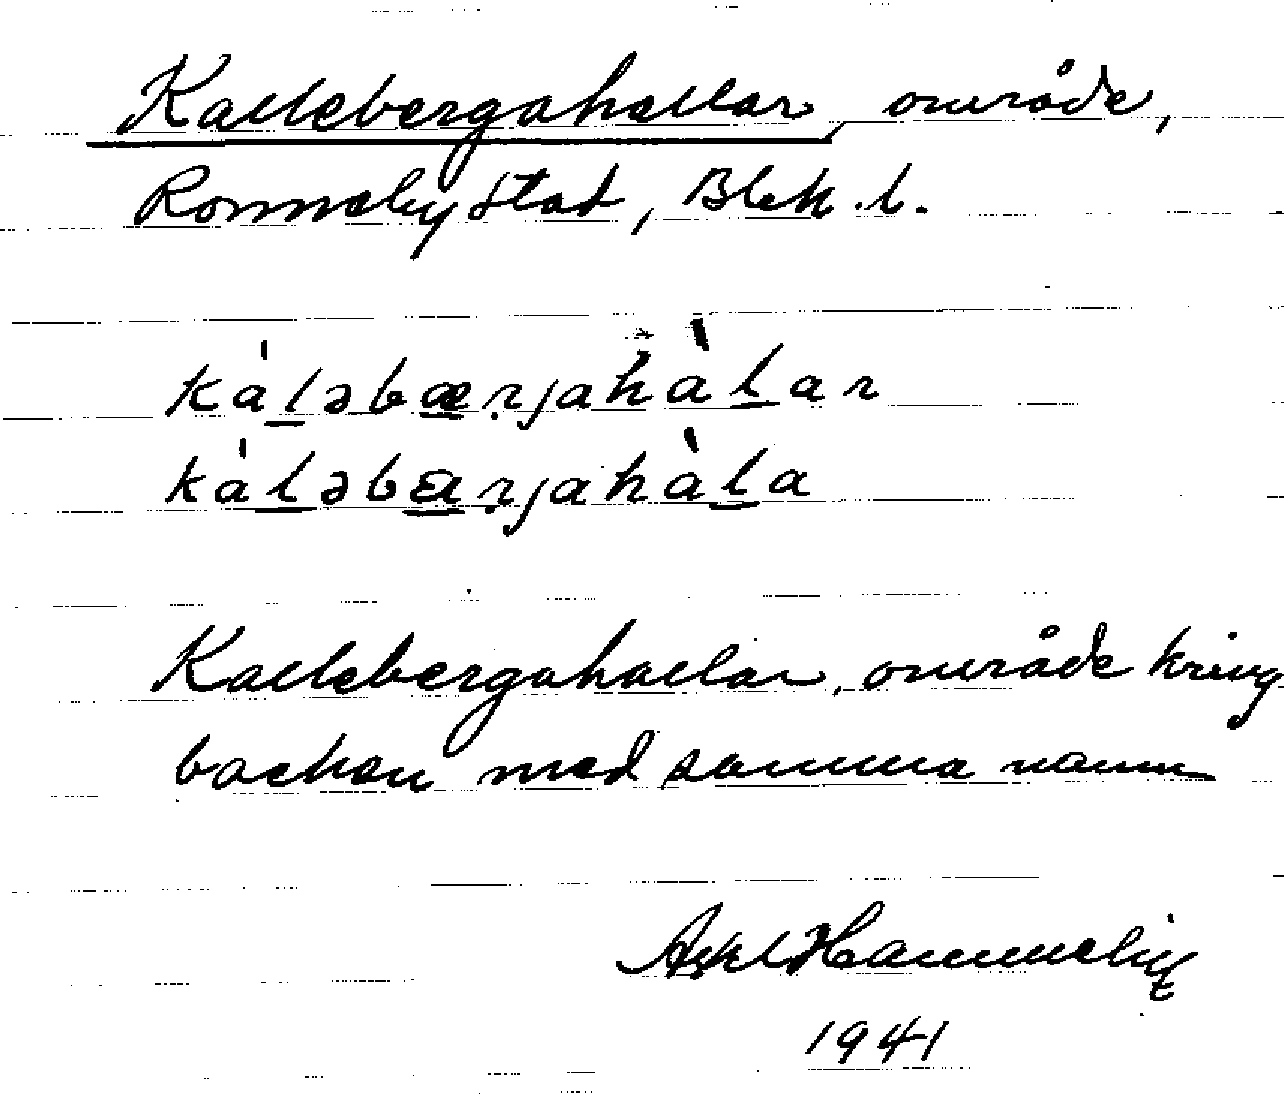 Kallebergahallar, område,
Ronneby stad, Blek. l.
kàl̲əbæ̲r̤jahàl̲ar
kàl̲əbɶ̲r̤jahàl̲a
Kallebergahallar, område kring
backen med samma namn
1941